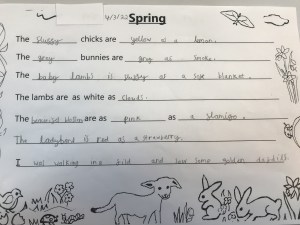 4/3/22 Spring
The fluffy chicks are yellow as a lemon.
The grey bunnies are grey as smoke.
The baby lamb is fluffy as a soft blanket.
The lambs are as white as clouds.
The are as pink as a flamigo.
The ladybird is red as a strawberry.
I was walking in a and saw some golden daffodil